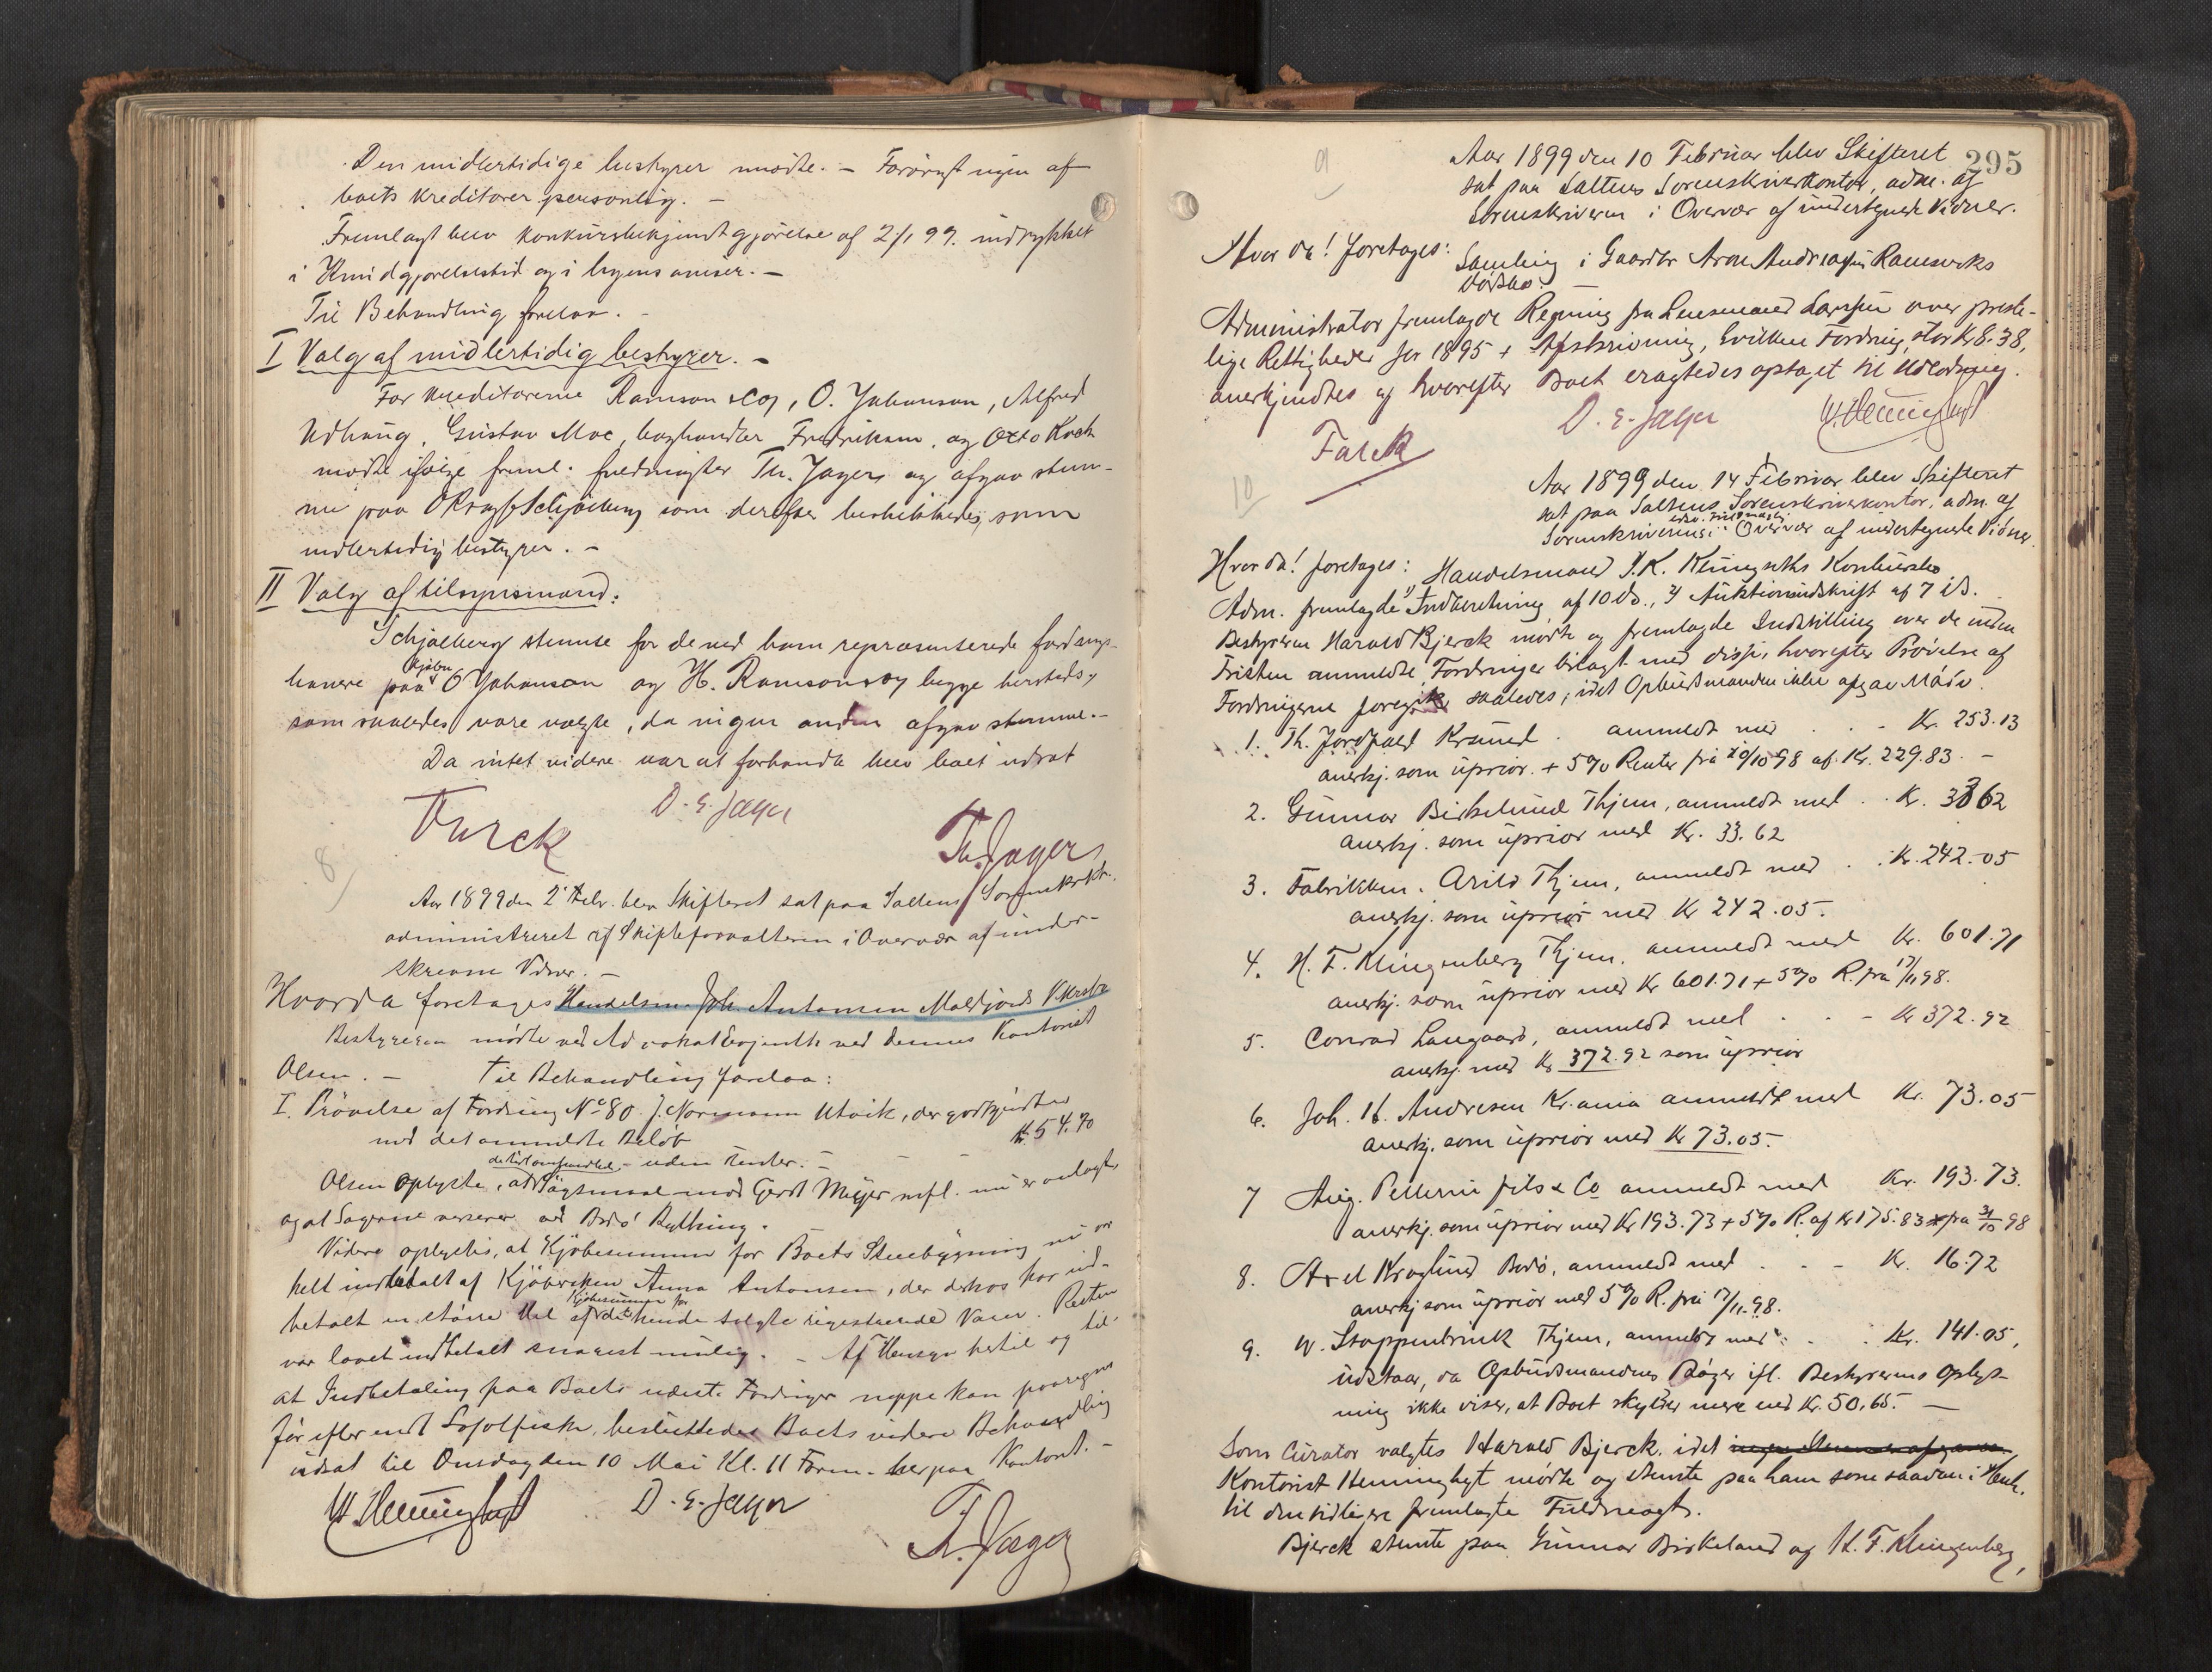 Den midlertidige bestyrer mødte. – Forøvrigt ingen af
boets kreditorer personlig. –
Fremlagt blev konkursbekjendtgjørelse af 2/1 99. indrykket
i Kundgjørelsestid og i byens aviser. –
Til Behandling forelaa. –
I Valg af midlertidig bestyrer. –
For kreditorerne Ramson & Co, O. Johanson, Alfred
Udhaug, Gustav Moe, boghandler Fredriksen, og Otto Koch
mødte ifølge freml. fuldmagter Th. Jager og afgav stem-
me paa Schjølberg som derefter beskikkedes som
midlertidig bestyrer. –
II Valg af tilsynsmænd:
Schjølberg stemte for de ved ham repræsenterede fordrings-
havere paa O Johanson og H. Ramson og begge hersteds,
som saaledes vare valgte, da ingen anden afgav stemme. –
Da intet videre var at forhandle blev boet udsat
D. E. Jager
Th. Jager
8
Aar 1899 den 2' Febr. blev Skifteret sat paa Saltens Sorenskrkt.
administreret af Skifteforvalteren i Overvær af under-
skrevne Vidner. –
Hvorda foretages Handelsm. Joh. Antonsen Misvær
Bestyreren mødte ved Advokat ved dennes Kontorist
Olsen. – Til Behandling forelaa:
I. Prøvelse af Fordring No 80. J. Normann Utvik, der godkjendtes
med det anmeldte Beløb Kr 54.70
– uden Renter. –
Olsen oplyste, at Søgsmaal mod Gerdt Meyer mfl. nu er anlagt,
og at Sagerne verserer ved Bodø Bything.
Videre oplystes, at Kjøbesummen for Boets Stuebygning nu er
helt indbetalt af Kjøbersken Anna Antonsen, der derhos har ind-
Kjøbesummen for
betalt en større Del af de hende solgte Varer. Resten
var lovet indbetalt snarest mulig. – Af Hensyn hertil og til,
at Indbetaling paa Boets udest. Fordringer neppe kan paaregnes
før efter endt Lofotfiske, besluttedes Boets videre Behandling
udsat til Onsdag den 10 Mai Kl. 11 Form. her paa Kontoret. –
D. E. Jager
Th. Jager
295
9
Aar 1899 den 10 Februar blev Skifteret
sat paa Saltens Sorenskriverkontor, adm. af
Sorenskriveren i Overvær af undertegnede Vidner.
Hvor da! foretages: Samling i Gaardbr Aron Andreassen
Dødsbo. –
Administrator fremlagde Regning fra Lensmand Larssen over preste-
lige Rettigheder for 1895 + Afskrivning, hvilken Fordring, stor Kr 8.38,
anerkjendtes og hvorefter Boet eragtedes optaget til Udlodning.
D. E. Jager
Falck
10
Aar 1899 den 14 Februar blev Skifteret
sat paa Saltens Sorenskriverkontor, adm. af
Sorenskriverens i Overvær af undertegnede Vidner.
Hvor da! foretages: Handelsmand J. K. Konkursbo
Adm. fremlagde 1) Indberetning af 10 ds., 2) Auktionsudskrift af 7 ds.
Bestyreren Harald Bjerck mødte og fremlagde Indstilling over de inden
Fristen anmeldte Fordringer bilagt med disse, hvorefter Prøvelse af
Fordringerne foregik saaledes, idet Opbudsmanden ikke afgav Møde.
1. Th. Kr.sund . anmeldt med . . – Kr. 253.13
anerkj. som uprior. + 5% Renter fra 20/10 98 af Kr. 229.83. –
2. Gunnar Birkeland Thjem, anmeldt med . . Kr. 33 62
anerkj. som uprior med Kr. 33.62
3. Fabrikken Arild Thjem, anmeldt med . . Kr. 242.05
anerkj. som uprior med Kr 242.05.
4. H. F. Klingenberg Thjem, anmeldt med Kr. 601.71
anerkj. som uprior med Kr 601.71 + 5% R. fra 17/11 98.
5. Conrad Langaard, anmeldt med . . – Kr 372.92
anerkj. med Kr 372.92 som uprior
6. Joh. H. Andresen Kr.ania anmeldt med Kr. 73.05
anerkj. som uprior med Kr 73.05.
7 Aug. Pellerin fils & Co anmeldt med Kr. 193.73.
anerkj. som uprior med Kr 193.73 + 5% R. af Kr 175.83 fra 31/10 98
8. Axel Kroglund Bodø, anmeldt med . . – Kr. 16.72
anerkj som uprior med 5% R. fra 17/11 98.
9. W. Stoppenbrink Thjem, anmeldt med . . . Kr. 141.05,
udstaar, da Opbudsmandens Bøger ifl. Bestyrerens Oplys-
ning ikke viser, at Boet skylder mere end Kr. 50.65. –
Som Curator valgtes Harald Bjerck, idet ingen Stemmer afgaves
Kontorist mødte og stemte paa ham som saadan i Henh.
til den tidligere fremlagte Fuldmagt.
Bjerck stemte paa Gunnar Birkeland og H. F. Klingenberg,